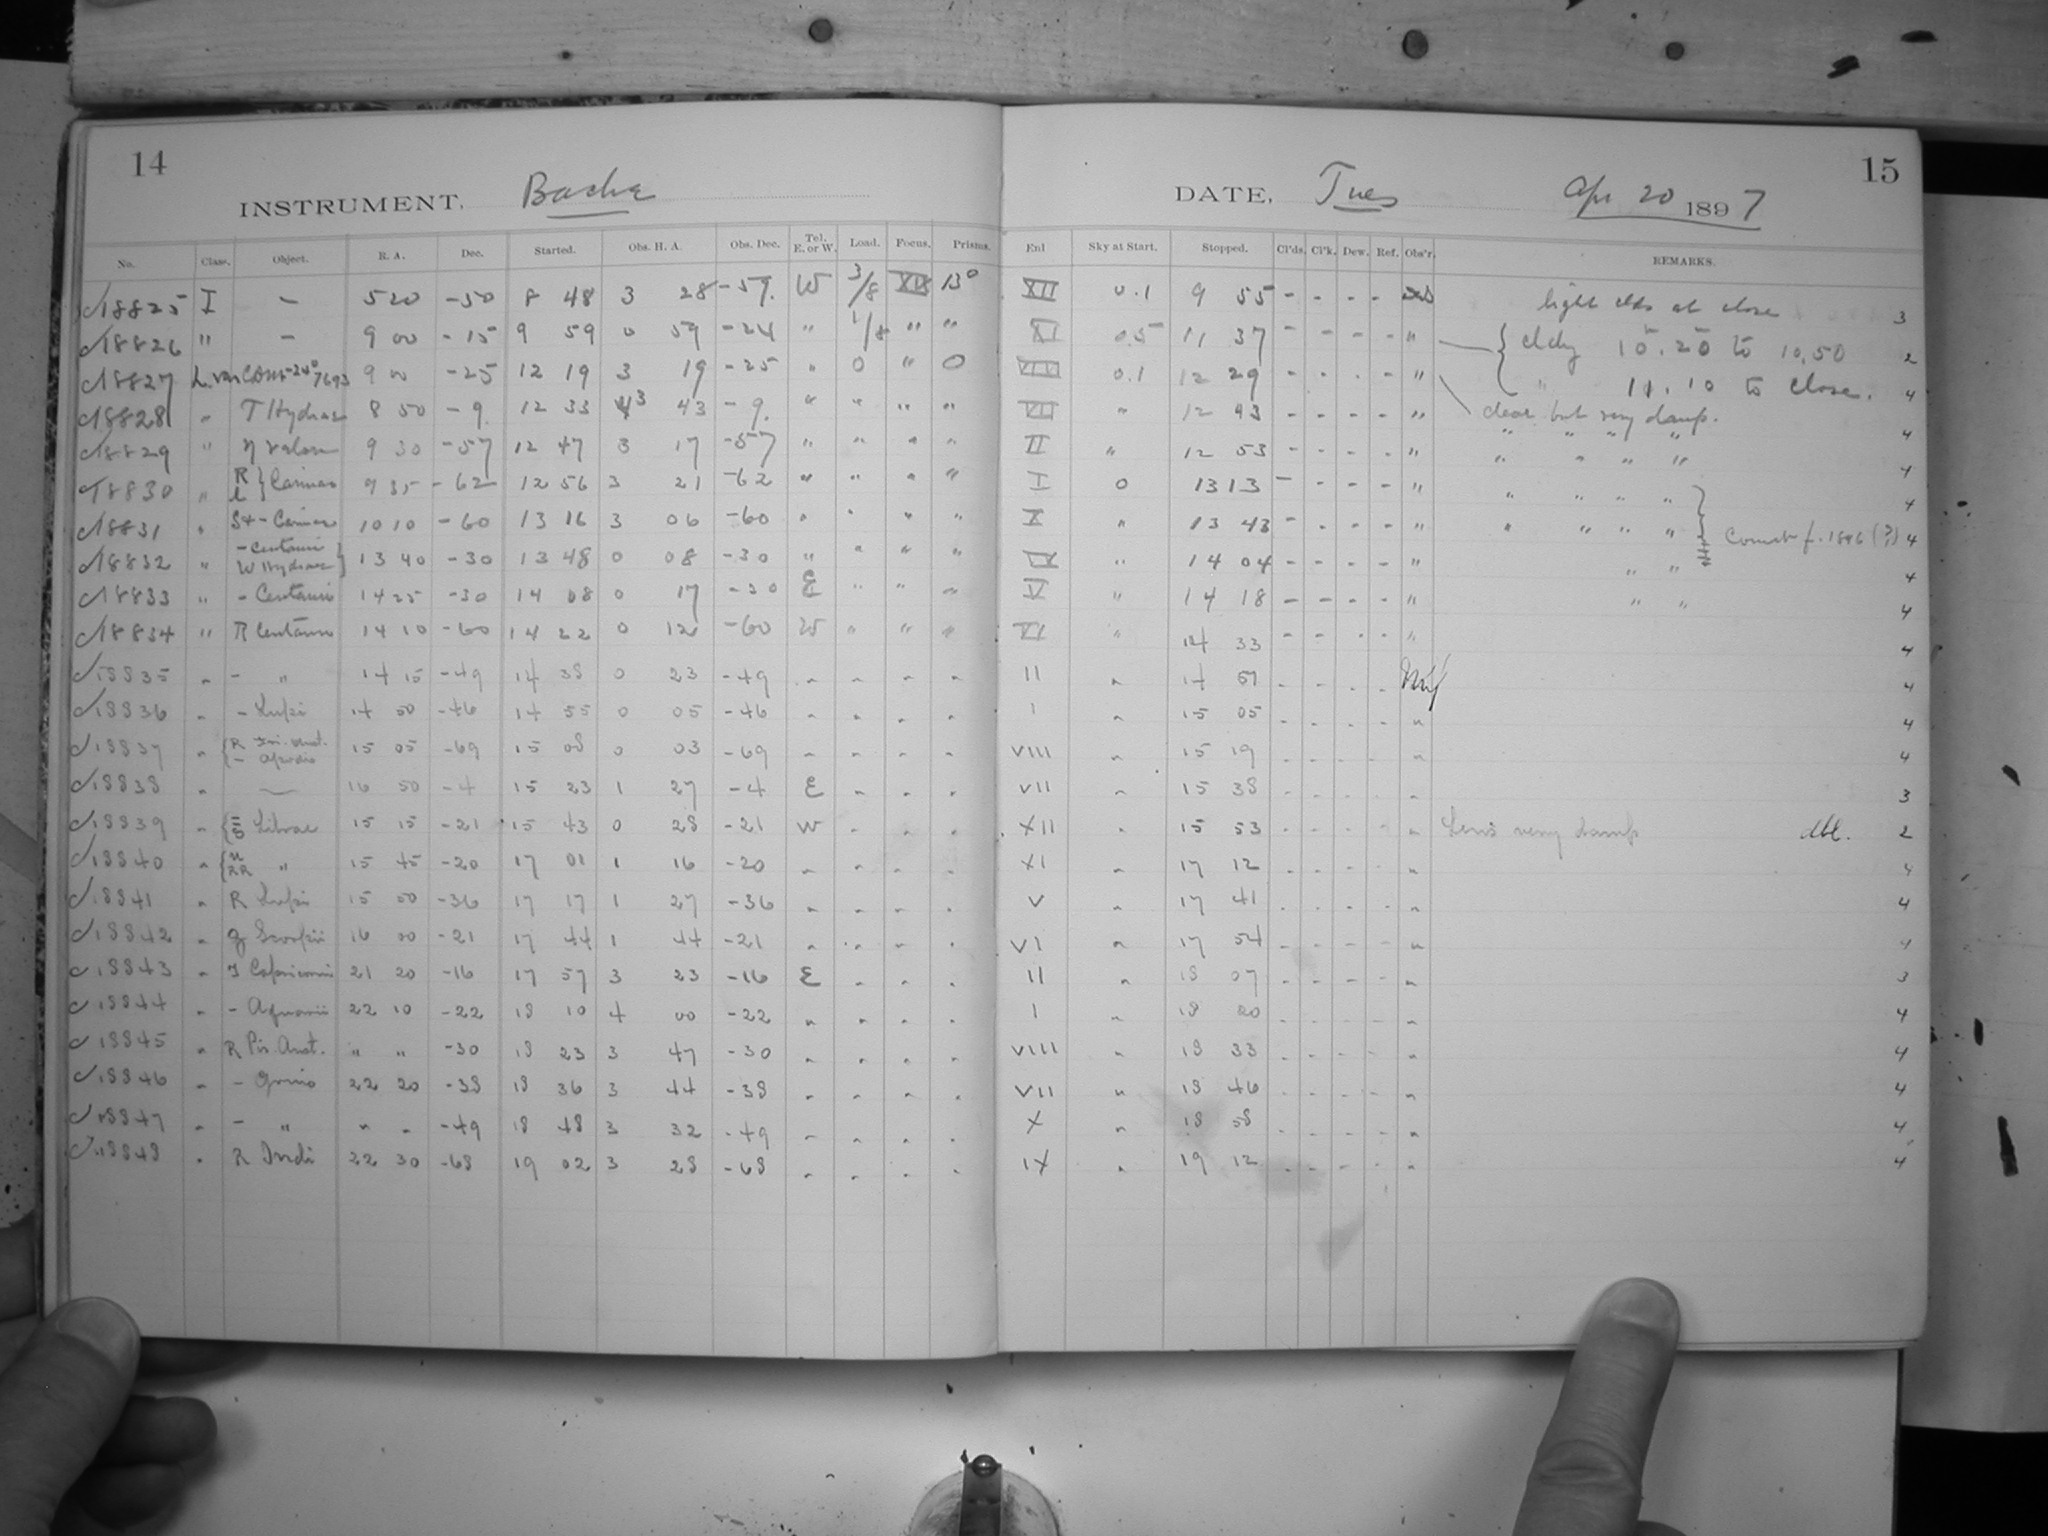 14
INSTRUMENT. Bache
No. Class. Object. R. A. Dec. Started. Obs. H. A. Obs. Dec. Tel. E. or W. Load. Focus. Prisms.
18825 I - 5 20 -50 8 48 3 28 -59. W 3/8 XII 13°
18826 " - 9 00 -15 9 59 0 59 -24 " 1/8 " "
18827 L. var Cord-24° 7693 9 00 -25 12 19 3 19 -25 " 0 " 0
18828 " T Hydrae 8 50 -9. 12 33 3 43 -9. " " " "
18829 " 9 30 -57 12 47 3 17 -57 " " " "
18830 " R l } Carinae 9 35 -62 12 56 3 21 -62 " " " "
18831 " S+- Carinae 10 10 -60 13 16 3 06 -60 " " " "
18832 " - Centauri W Hydrae } 13 40 -30 13 48 0 08 -30 " " " "
18833 " - Centauri 14 25 -30 14 08 0 17 -30 E " " "
18834 " R Centauri 14 10 -60 14 22 0 12 -60 W " " "
18835 " - " 14 15 -49 14 38 0 23 -49 " " " "
18836 " - Lupi 14 50 -46 14 55 0 05 -46 " " " "
18837 " { R Tri. Aust. - Apodis 15 05 -69 15 08 0 03 -69 " " " "
18838 " — 16 50 -4 15 23 1 27 -4 E " " "
18839 " Librae 15 15 -21 15 43 0 28 -21 W " " "
18840 " { " 15 45 -20 17 01 1 16 -20 " " " "
18841 " R Lupi 15 50 -36 17 17 1 27 -36 " " " "
18842 " Scorpii 16 00 -21 17 44 1 44 -21 " " " "
18843 " T Capricorni 21 20 -16 17 57 3 23 -16 E " " "
18844 " - Aquarii 22 10 -22 18 10 4 00 -22 " " " "
18845 " R Pis. Aust. " " -30 18 23 3 47 -30 " " " "
18846 " - Gruis 22 20 -38 18 36 3 44 -38 " " " "
18847 " - " " " -49 18 48 3 32 -49 " " " "
18848 " R Indi 22 30 -68 19 02 3 28 -68 " " " "
15
DATE, Tues Apr 20 1897
Enl Sky at Start. Stopped. Cl'ds. Cl'k. Dew. Ref. Obs'r. REMARKS.
XII 0.1 9 55 - - - - light clds at close 3
XI 0.5 11 37 - - - - " { cldy 10.20 to 10.50 2
VIII 0.1 12 29 - - - - " " 11.10 to close. 4
VII " 12 43 - - - - " clear but very damp. 4
II " 12 53 - - - - " " " " " 4
I 0 13 13 - - - - " " " " " 4
X " 13 43 - - - - " " " " " 1896 (?) 4
IX " 14 04 - - - - " " " 4
V " 14 18 - - - - " " " 4
VI " 14 33 - - - - " 4
II " 14 51 - - - - 4
I " 15 05 - - - - " 4
VIII " 15 19 - - - - " 4
VII " 15 38 - - - - " 3
XII " 15 53 - - - - " Lens very damp dbl. 2
XI " 17 12 - - - - " 4
V " 17 41 - - - - " 4
VI " 17 54 - - - - " 4
II " 18 07 - - - - " 3
I " 18 20 - - - - " 4
VIII " 18 33 - - - - " 4
VII " 18 46 - - - - " 4
X " 18 58 - - - - " 4
IX " 19 12 - - - - " 4